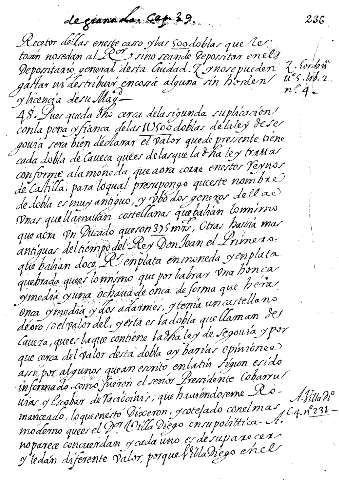 de granada. Cap. 39. 236
Receptor dellas en este caso y las 500 doblas que res-
tan no se dan al Ror, sino se an de Depositar en el
Depositario general desta Ciudad. Y no se pueden
gastar ni destribuir en cosa alguna sin horden
y licencia de su Magd.
48. Pues queda dho cerca de la segunda suplicacion
con la pena y fianca de las 1U500 doblas de la ley de Se-
govia sera bien declarar el valor que de presente tiene
cada dobla de Caveca que es de las que la dha ley tratta
conforme a la moneda, que aora corre en estos Reynos
de Castilla, para lo qual presupongo que este nombre
de dobla es muy antiguo, y ubo dos generos dellas
Unas que llamaban castellanas que valian lo mismo
que aora un Ducado que son 375 mrs, Otras havia mas
antiguas del tiempo del Rey Don Joan el Primero
que valian doce Rs en plata en moneda y en plata
quebrada que es lo mismo que por labrar una honca
y media y una ochava de onca de forma que hera
onca y media y dos adarmes, y tenia un castellano
de oro o el valor del, y esta es la dobla que llaman de
Caveca, que es la que contiene la dha ley de Segovia y por
que cerca del valor desta dobla ay barias opiniones
assi por algunos que an escrito en latin segun e sido
informado, como fueron el señor Presidente Cobarru-
vias y
que haviendome Ro-
mancado, lo que nesto Dixeron, y cotejado con el mas
moderno que es el Dor Villa Diego en su polittica - A.
no parece concuerdan y cada uno es de su parecer
y le dan diferente valor, porque Villa Diego en el
n.º 5. lib. 2.
n.º 4.
A. Villa Dº
C. 4. nº 231